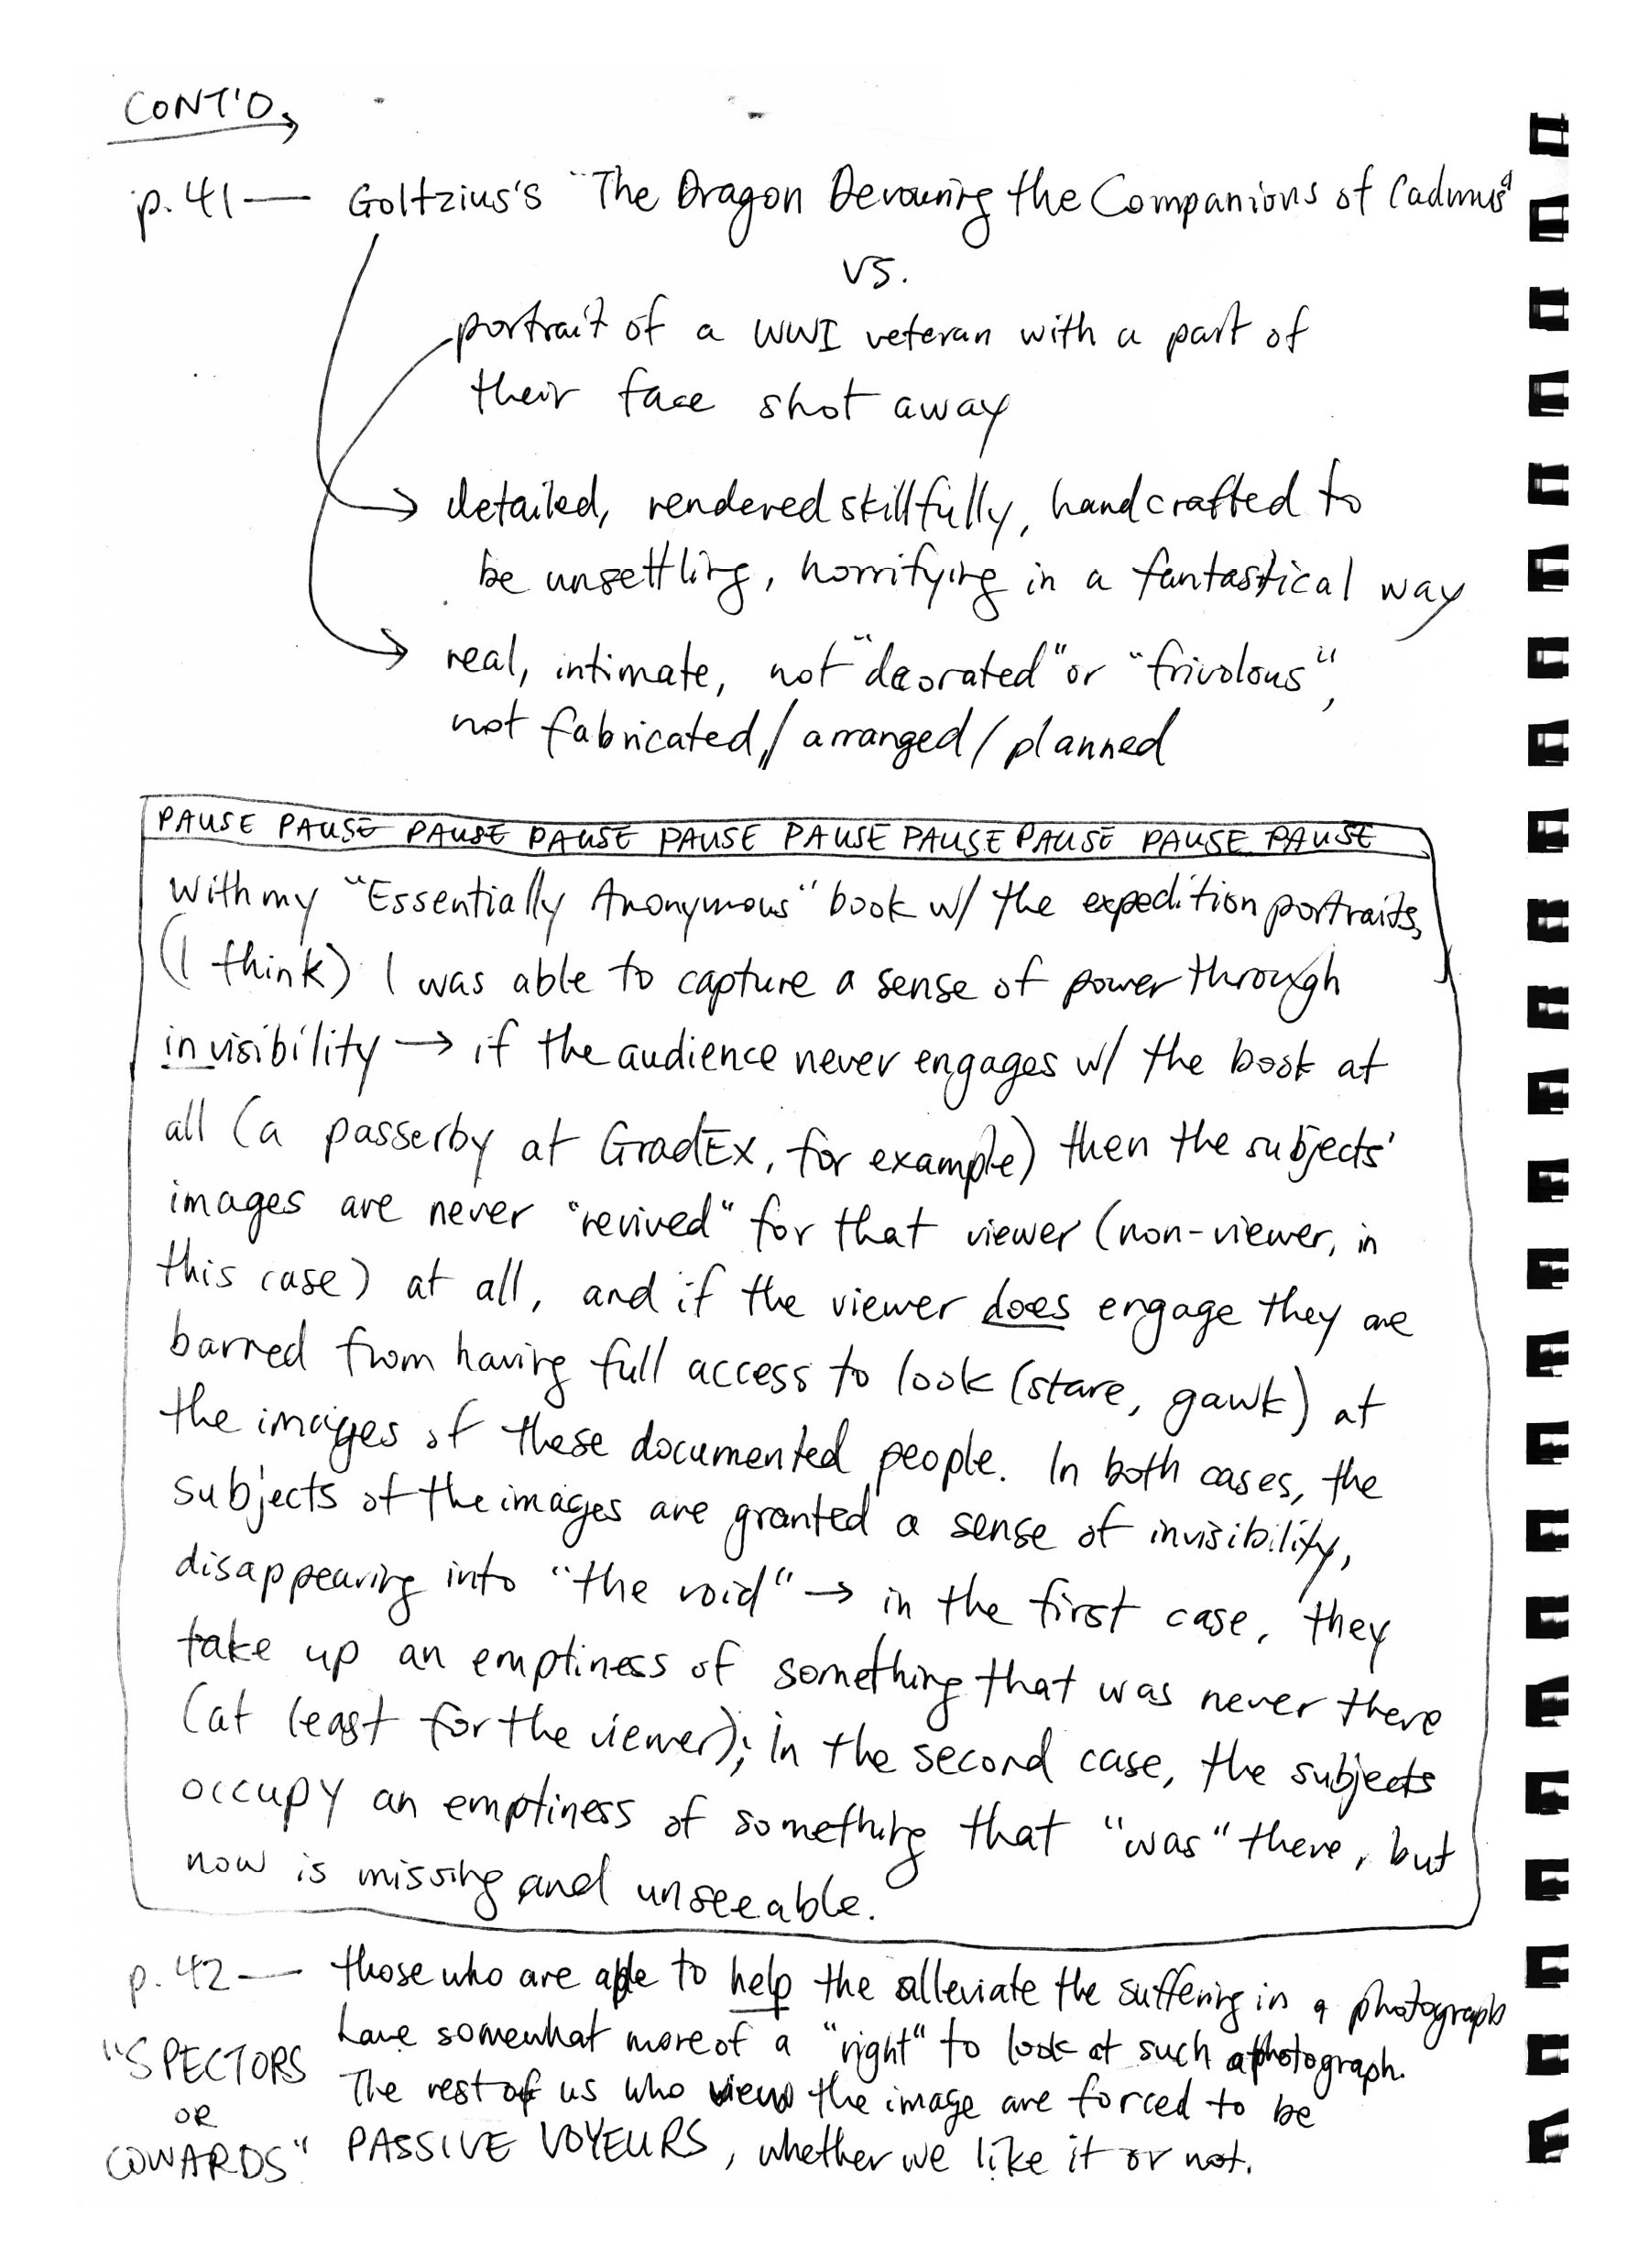 CONT'D
p. 41 — Goltzius's "The Dragon Devouring the Companions of Cadmus"
vs.
portrait of a WWI veteran with a part of
their face shot away
→ detailed, rendered skillfully, handcrafted to
be unsettling, horrifying in a fantastical way
→ real, intimate, not "decorated" or "frivolous",
not fabricated/arranged/planned
PAUSE PAUSE PAUSE PAUSE PAUSE PAUSE PAUSE PAUSE PAUSE PAUSE
With my "Essentially Anonymous" book w/ the expedition portraits,
(I think) I was able to capture a sense of power through
invisibility → if the audience never engages w/ the book at
all (a passerby at GradEx, for example) then the subjects'
images are never "revived" for that viewer (non-viewer, in
this case) at all, and if the viewer does engage they are
barred from having full access to look (stare, gawk) at
the images of these documented people. In both cases, the
subjects of the images are granted a sense of invisibility,
disappearing into "the void" → in the first case, they
take up an emptiness of something that was never there
(at least for the viewer); in the second case, the subjects
occupy an emptiness of something that "was" there, but
now is missing and unseeable.
p. 42 — those who are able to help the alleviate the suffering in a photograph
have somewhat more of a "right" to look at such a photograph.
The rest of us who view the image are forced to be
PASSIVE VOYEURS, whether we like it or not.
"SPECTORS
OR
COWARDS"